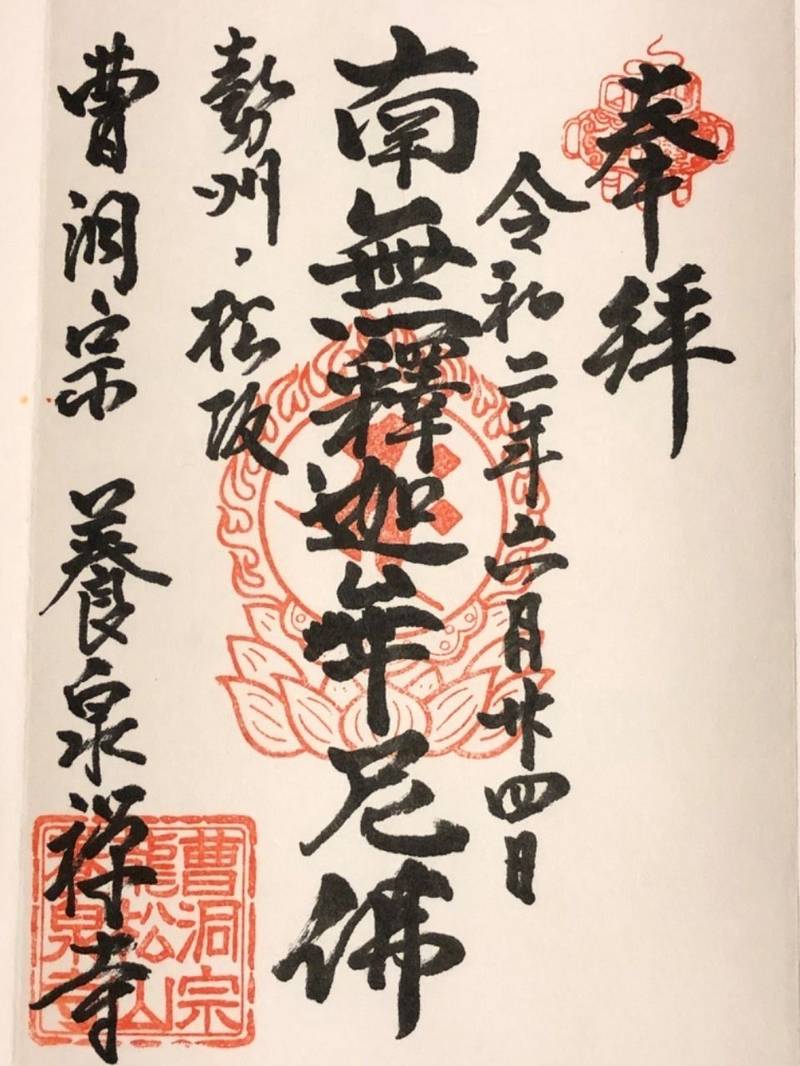 奉拜
令和二年六月廿四日
南無釋迦牟尼佛
勢州、松阪
曹洞宗 養泉禅寺
曹洞宗
龍松山
養泉寺